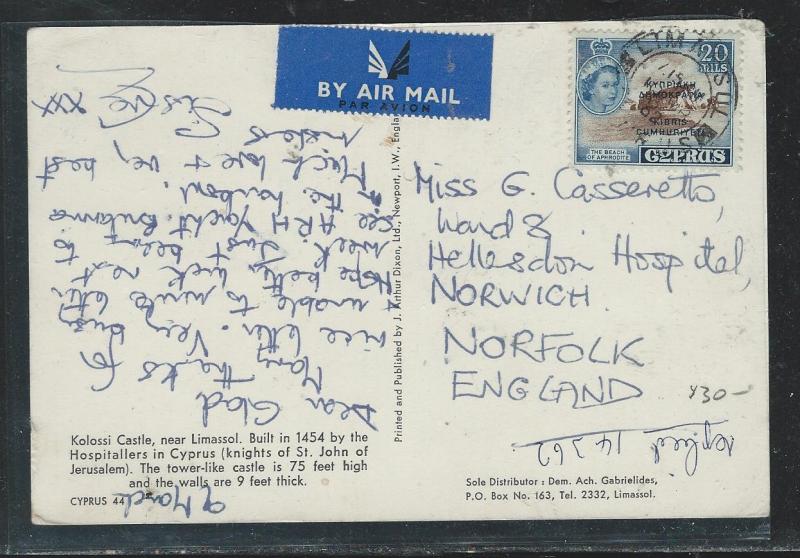 BY AIR MAIL
PAR AVION
LIMASSOL
20
MILS
ΚΥΠΡΙΑΚΗ
ΔΗΜΟΚΡΑΤΙΑ
KIBRIS
CUMHURIYETI
THE BEACH
OF APHRODITE
CYPRUS
Miss G. Casseretto,
Ward 8.
Hellesdon Hospital,
NORWICH.
NORFOLK
ENGLAND
Y30-
replied 14.3.62
9 March
Dear Glad
Many thanks for
nice letter. Very busy
unable to write letter
Hope better luck next
week. Just been to
see HRH Yacht Britannia
in the harbour.
Much love + best
wishes
xxx
Printed and Published by J. Arthur Dixon, Ltd., Newport, I.W., England
Kolossi Castle, near Limassol. Built in 1454 by the
Hospitallers in Cyprus (knights of St. John of
Jerusalem). The tower-like castle is 75 feet high
and the walls are 9 feet thick.
CYPRUS 44
Sole Distributor : Dem. Ach. Gabrielides,
P.O. Box No. 163, Tel. 2332, Limassol.